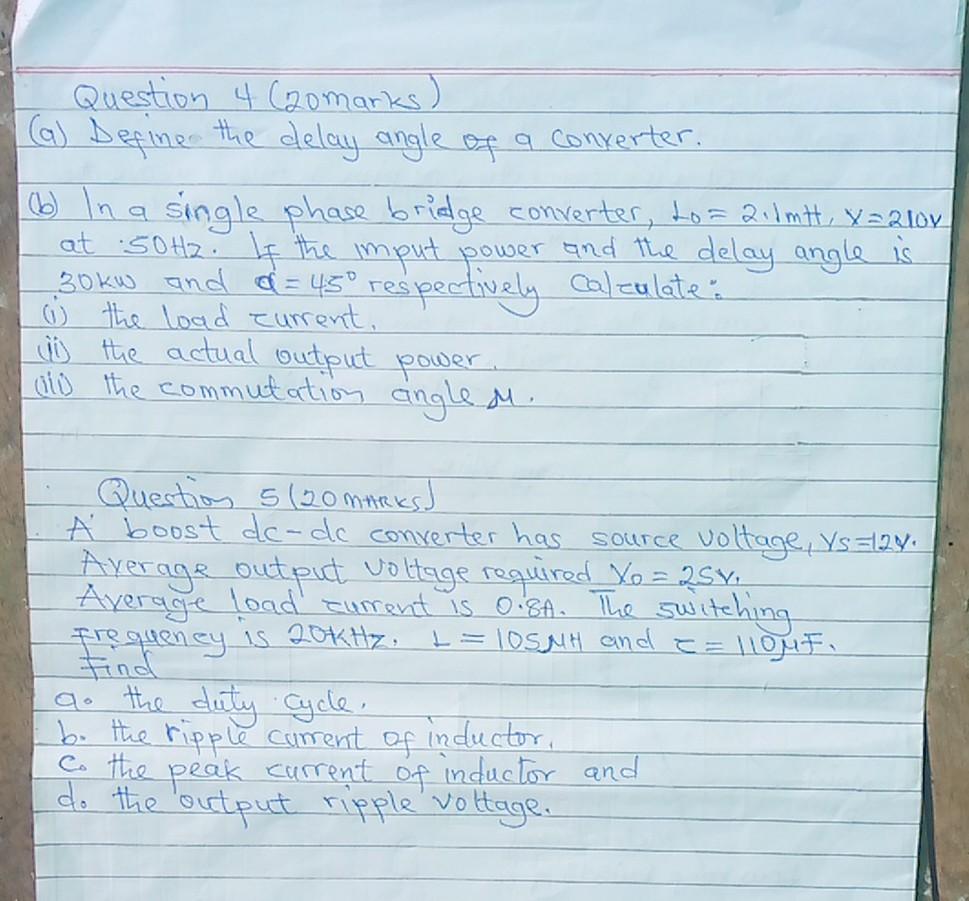 Question 4 (20marks)
(a) Define the delay angle of a converter.
(b) In a single phase bridge converter, Lo = 2.1mH, V=210V
at 50Hz. If the imput power and the delay angle is
30kw and α=45° respectively Calculate:
(i) the load current.
(ii) the actual output power.
(iii) the commutation angle μ.
Question 5 (20marks)
A boost dc-dc converter has source voltage, Vs=12V.
Average output voltage required Vo = 25V.
Average load current is 0.8A. The switching
frequency is 20kHz. L = 105μH and C = 110μF.
Find
a. the duty cycle.
b. the ripple current of inductor.
c. the peak current of inductor and
d. the output ripple voltage.